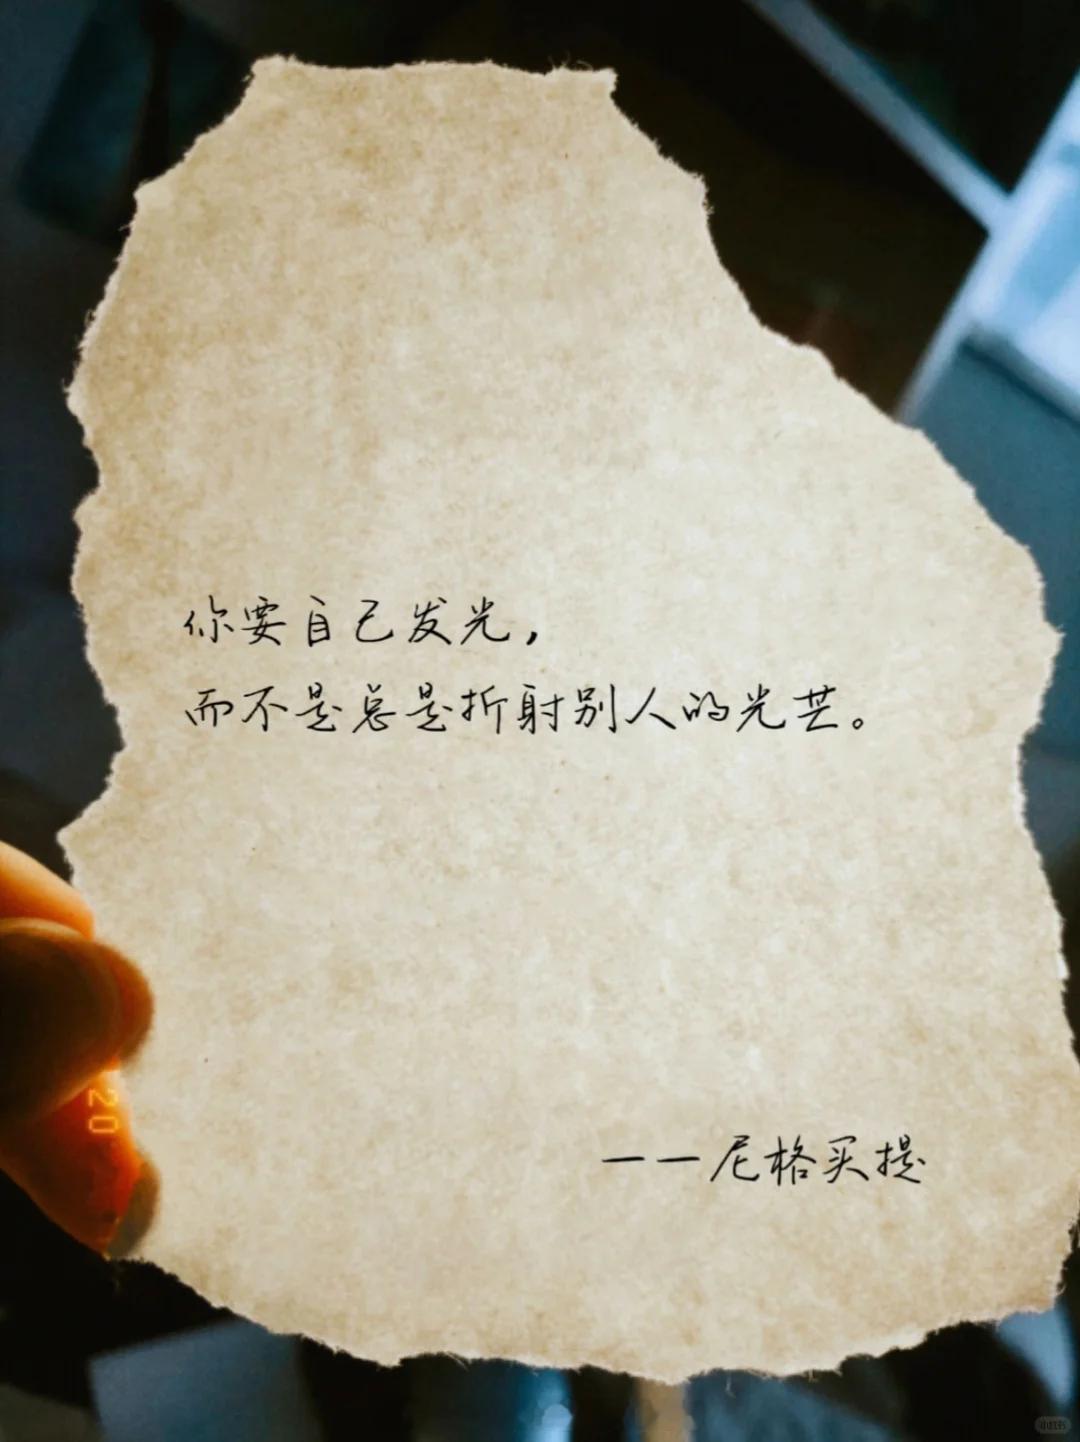 你要自己发光，
而不是总是折射别人的光芒。
——尼格买提
20
小红书